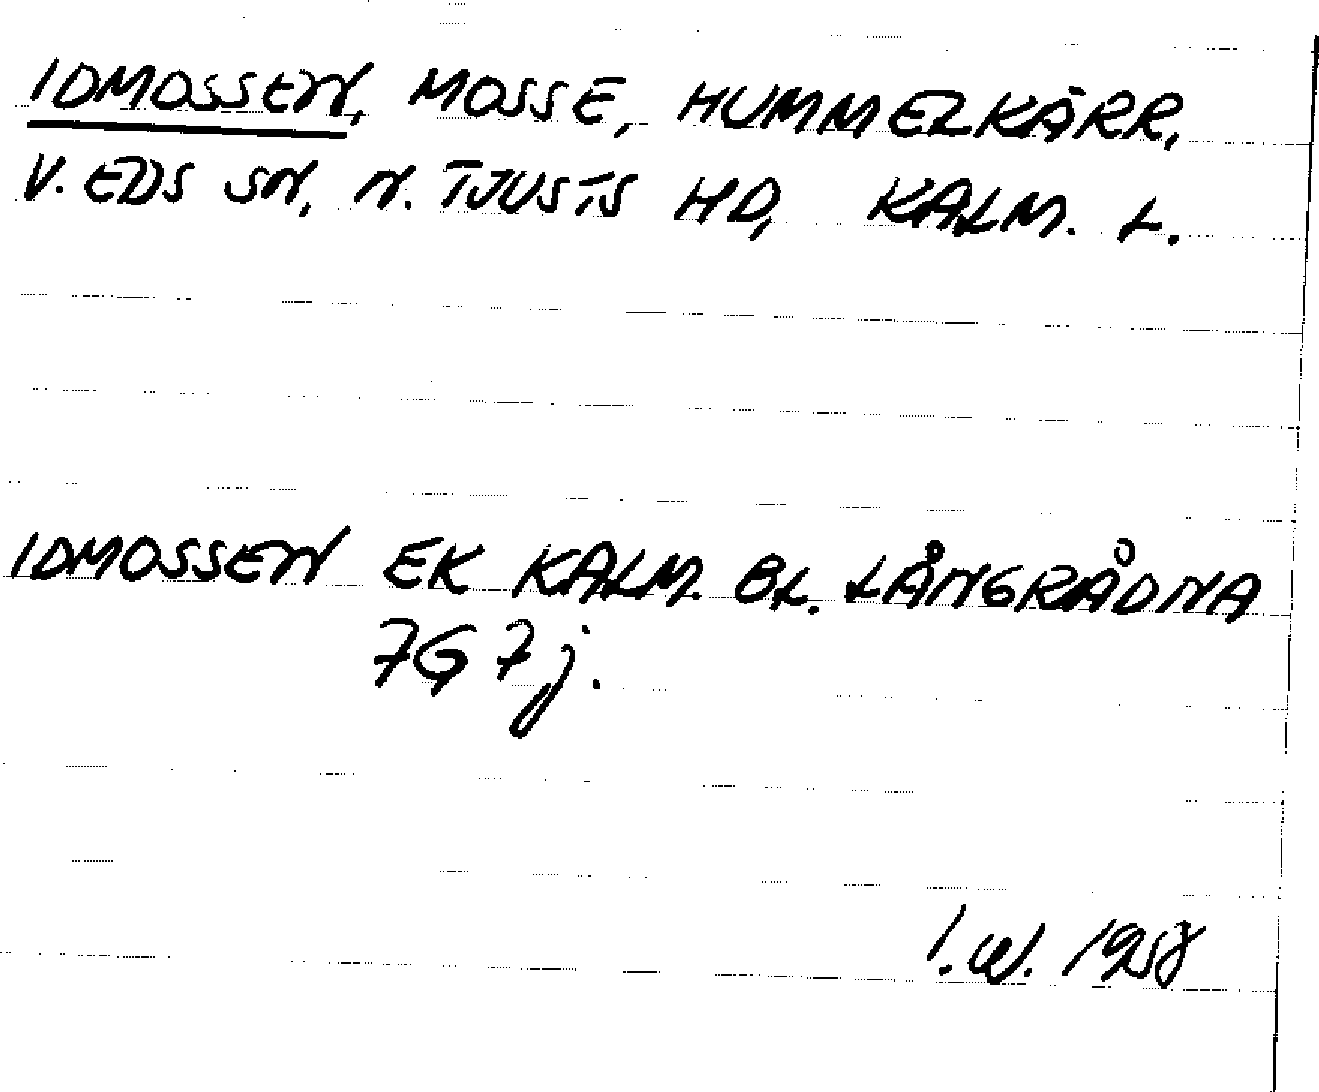 IDMOSSEN, MOSSE, HUMMELKÄRR,
V. EDS SN, N. TJUSTS HD, KALM. L.
IDMOSSEN EK KALM. BL. LÅNGRÅDNA
7G 7j.
I.W. 1958